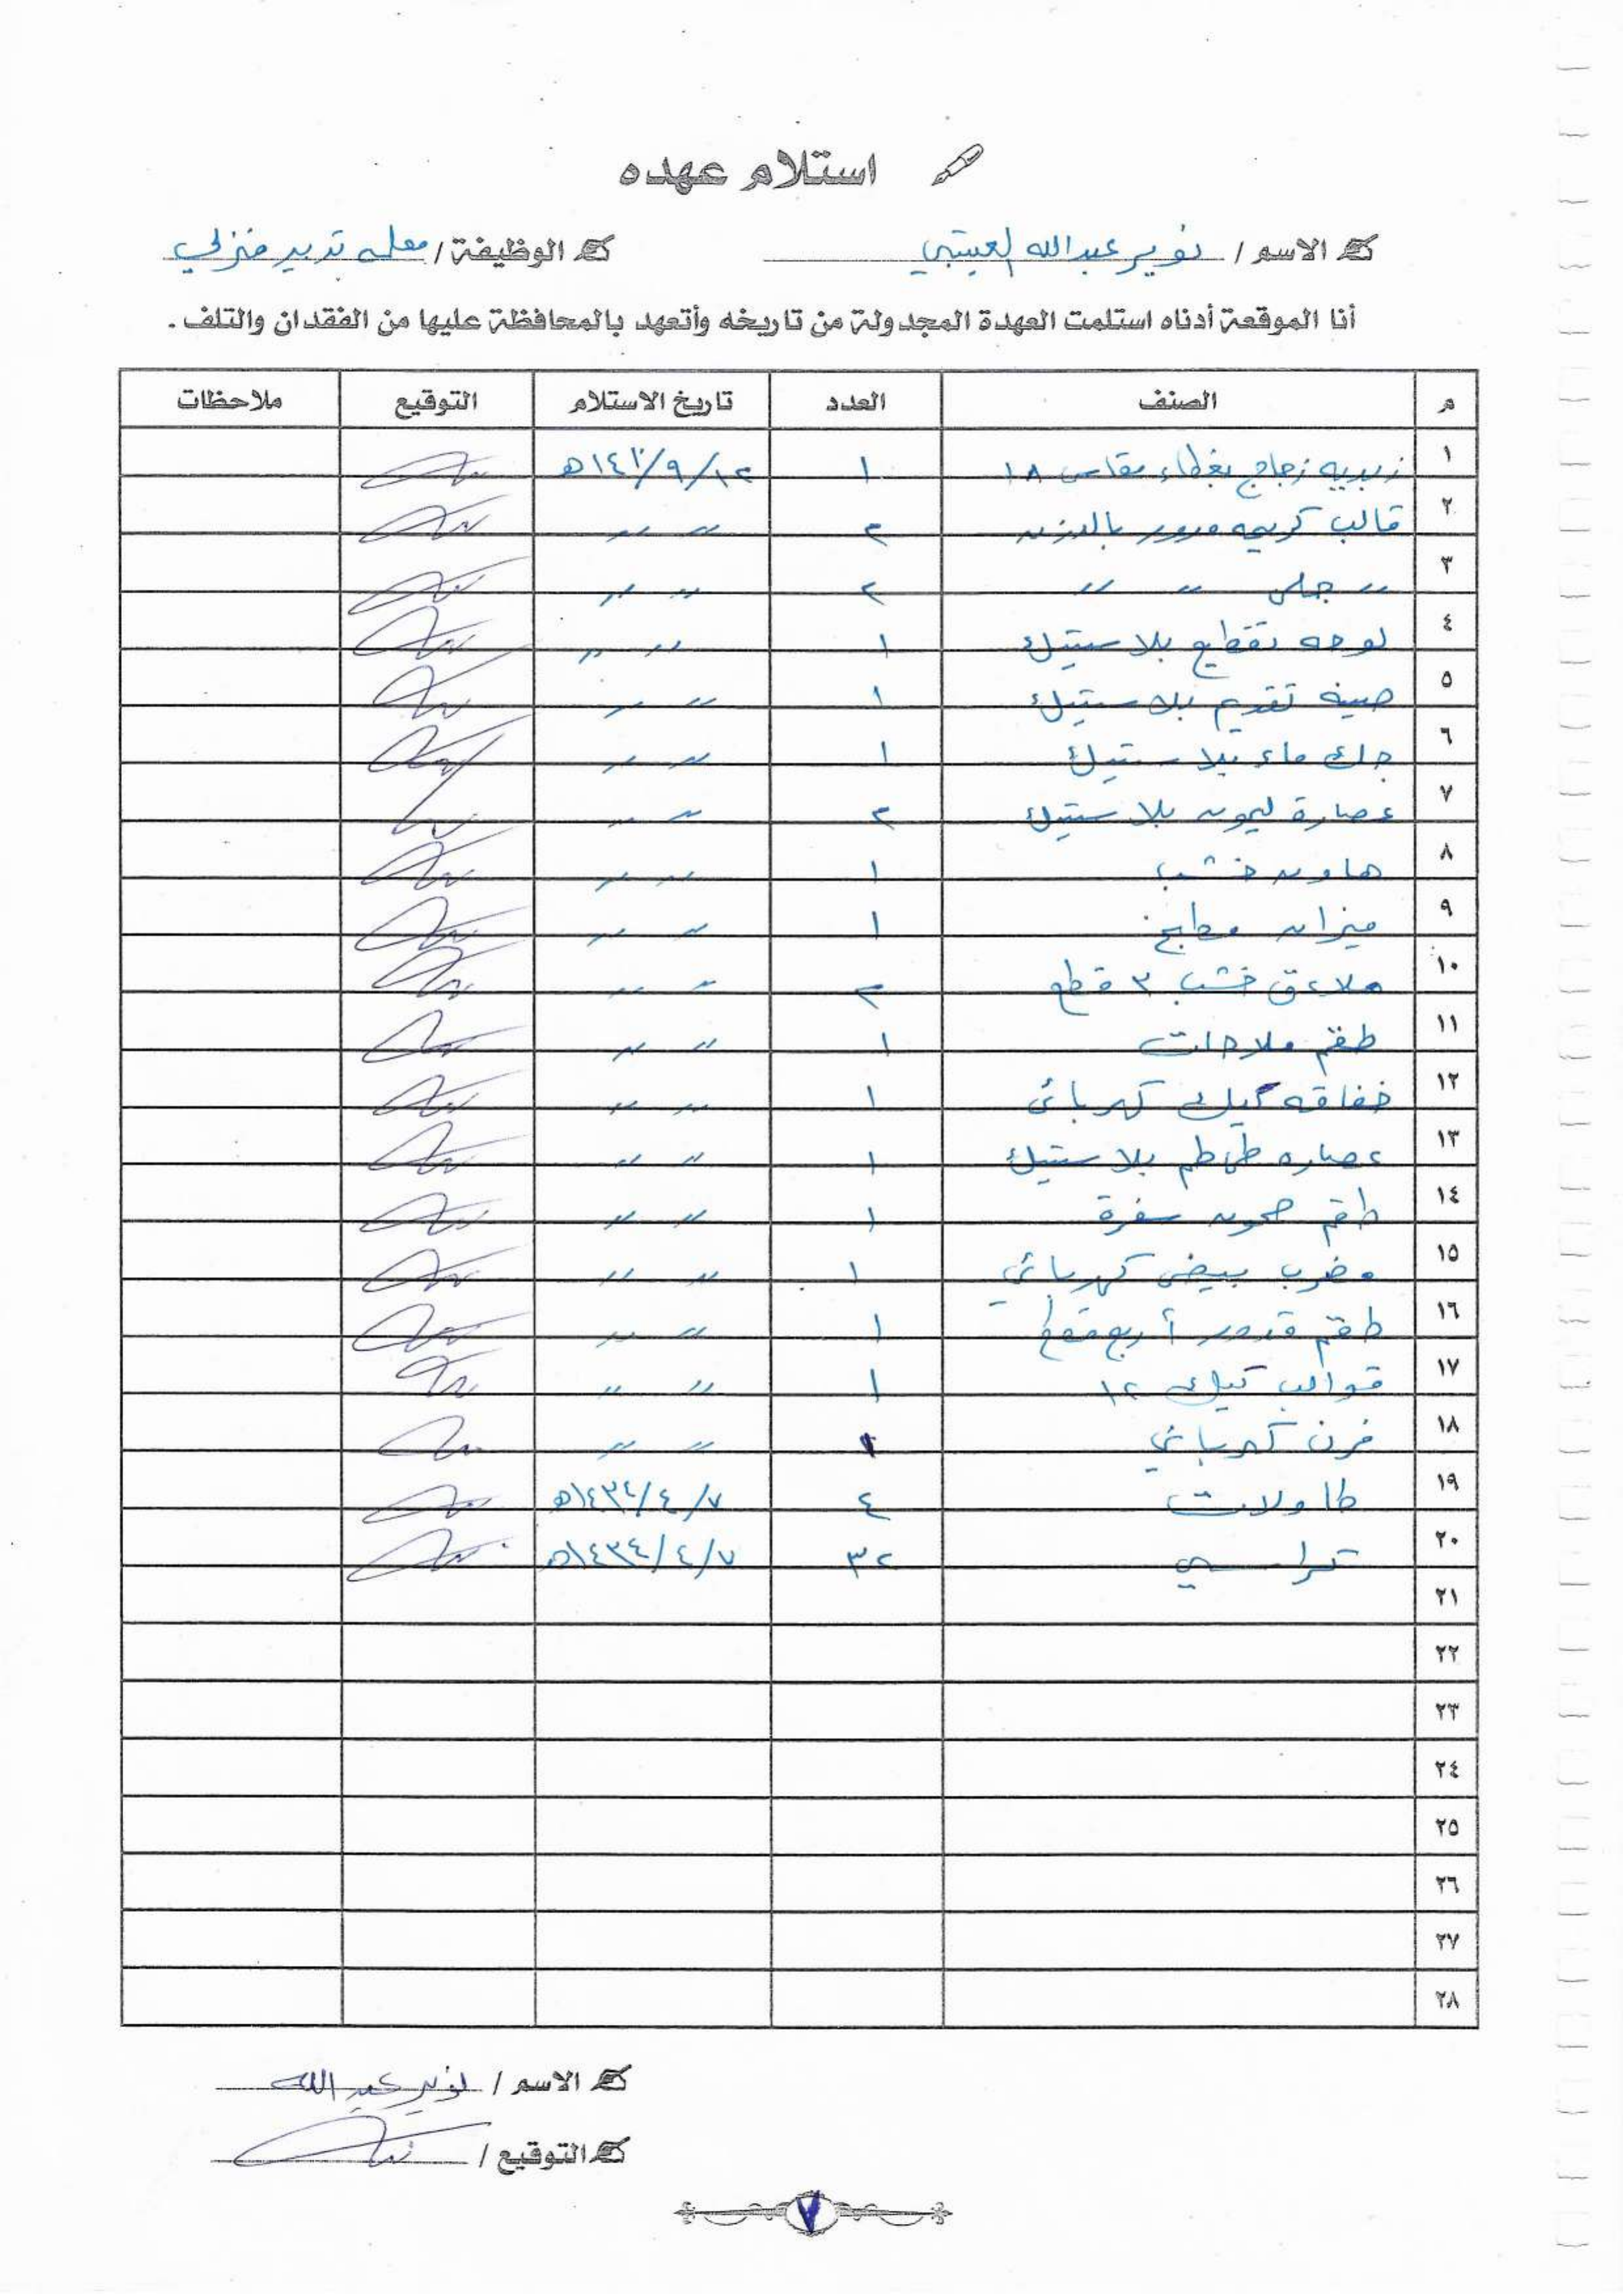 استلام عهده
الاسم / نوير عبدالله العتيبي الوظيفة / معلمه تدبير منزلي
أنا الموقعة أدناه استلمت العهدة المجدولة من تاريخه وأتعهد بالمحافظة عليها من الفقدان والتلف .
م الصنف العدد تاريخ الاستلام التوقيع ملاحظات
١ زبديه زجاج بغطاء مقاس ١٨ ١ ١٢/٩/ هـ
٢ قالب كريمه مدور ٢ 〃 〃
٣ 〃 جلي 〃 〃 ٢ 〃 〃
٤ لوحه تقطيع بلاستيك ١ 〃 〃
٥ صينه تقديم بلاستيك ١ 〃 〃
٦ جك ماء بلاستيك ١ 〃 〃
٧ عصارة ليمون بلاستيك ٢ 〃 〃
٨ هاون خشب ١ 〃 〃
٩ ميزان مطبخ ١ 〃 〃
١٠ ملاعق خشب ٣ قطع ٢ 〃 〃
١١ طقم ملاحات ١ 〃 〃
١٢ خفاقه كيك كهربائي ١ 〃 〃
١٣ عصاره طماطم بلاستيك ١ 〃 〃
١٤ طقم صحون سفرة ١ 〃 〃
١٥ مضرب بيض كهربائي ١ 〃 〃
١٦ طقم قدور أربع قطع ١ 〃 〃
١٧ قوالب كيك ١٢ ١ 〃 〃
١٨ فرن كهربائي ١ 〃 〃
١٩ طاولات ٤ ٧/٤/١٤٣٤هـ
٢٠ كراسي ٣٢ ٧/٤/١٤٣٤هـ
٢١
٢٢
٢٣
٢٤
٢٥
٢٦
٢٧
٢٨
الاسم / نوير عبدالله
التوقيع /
٧